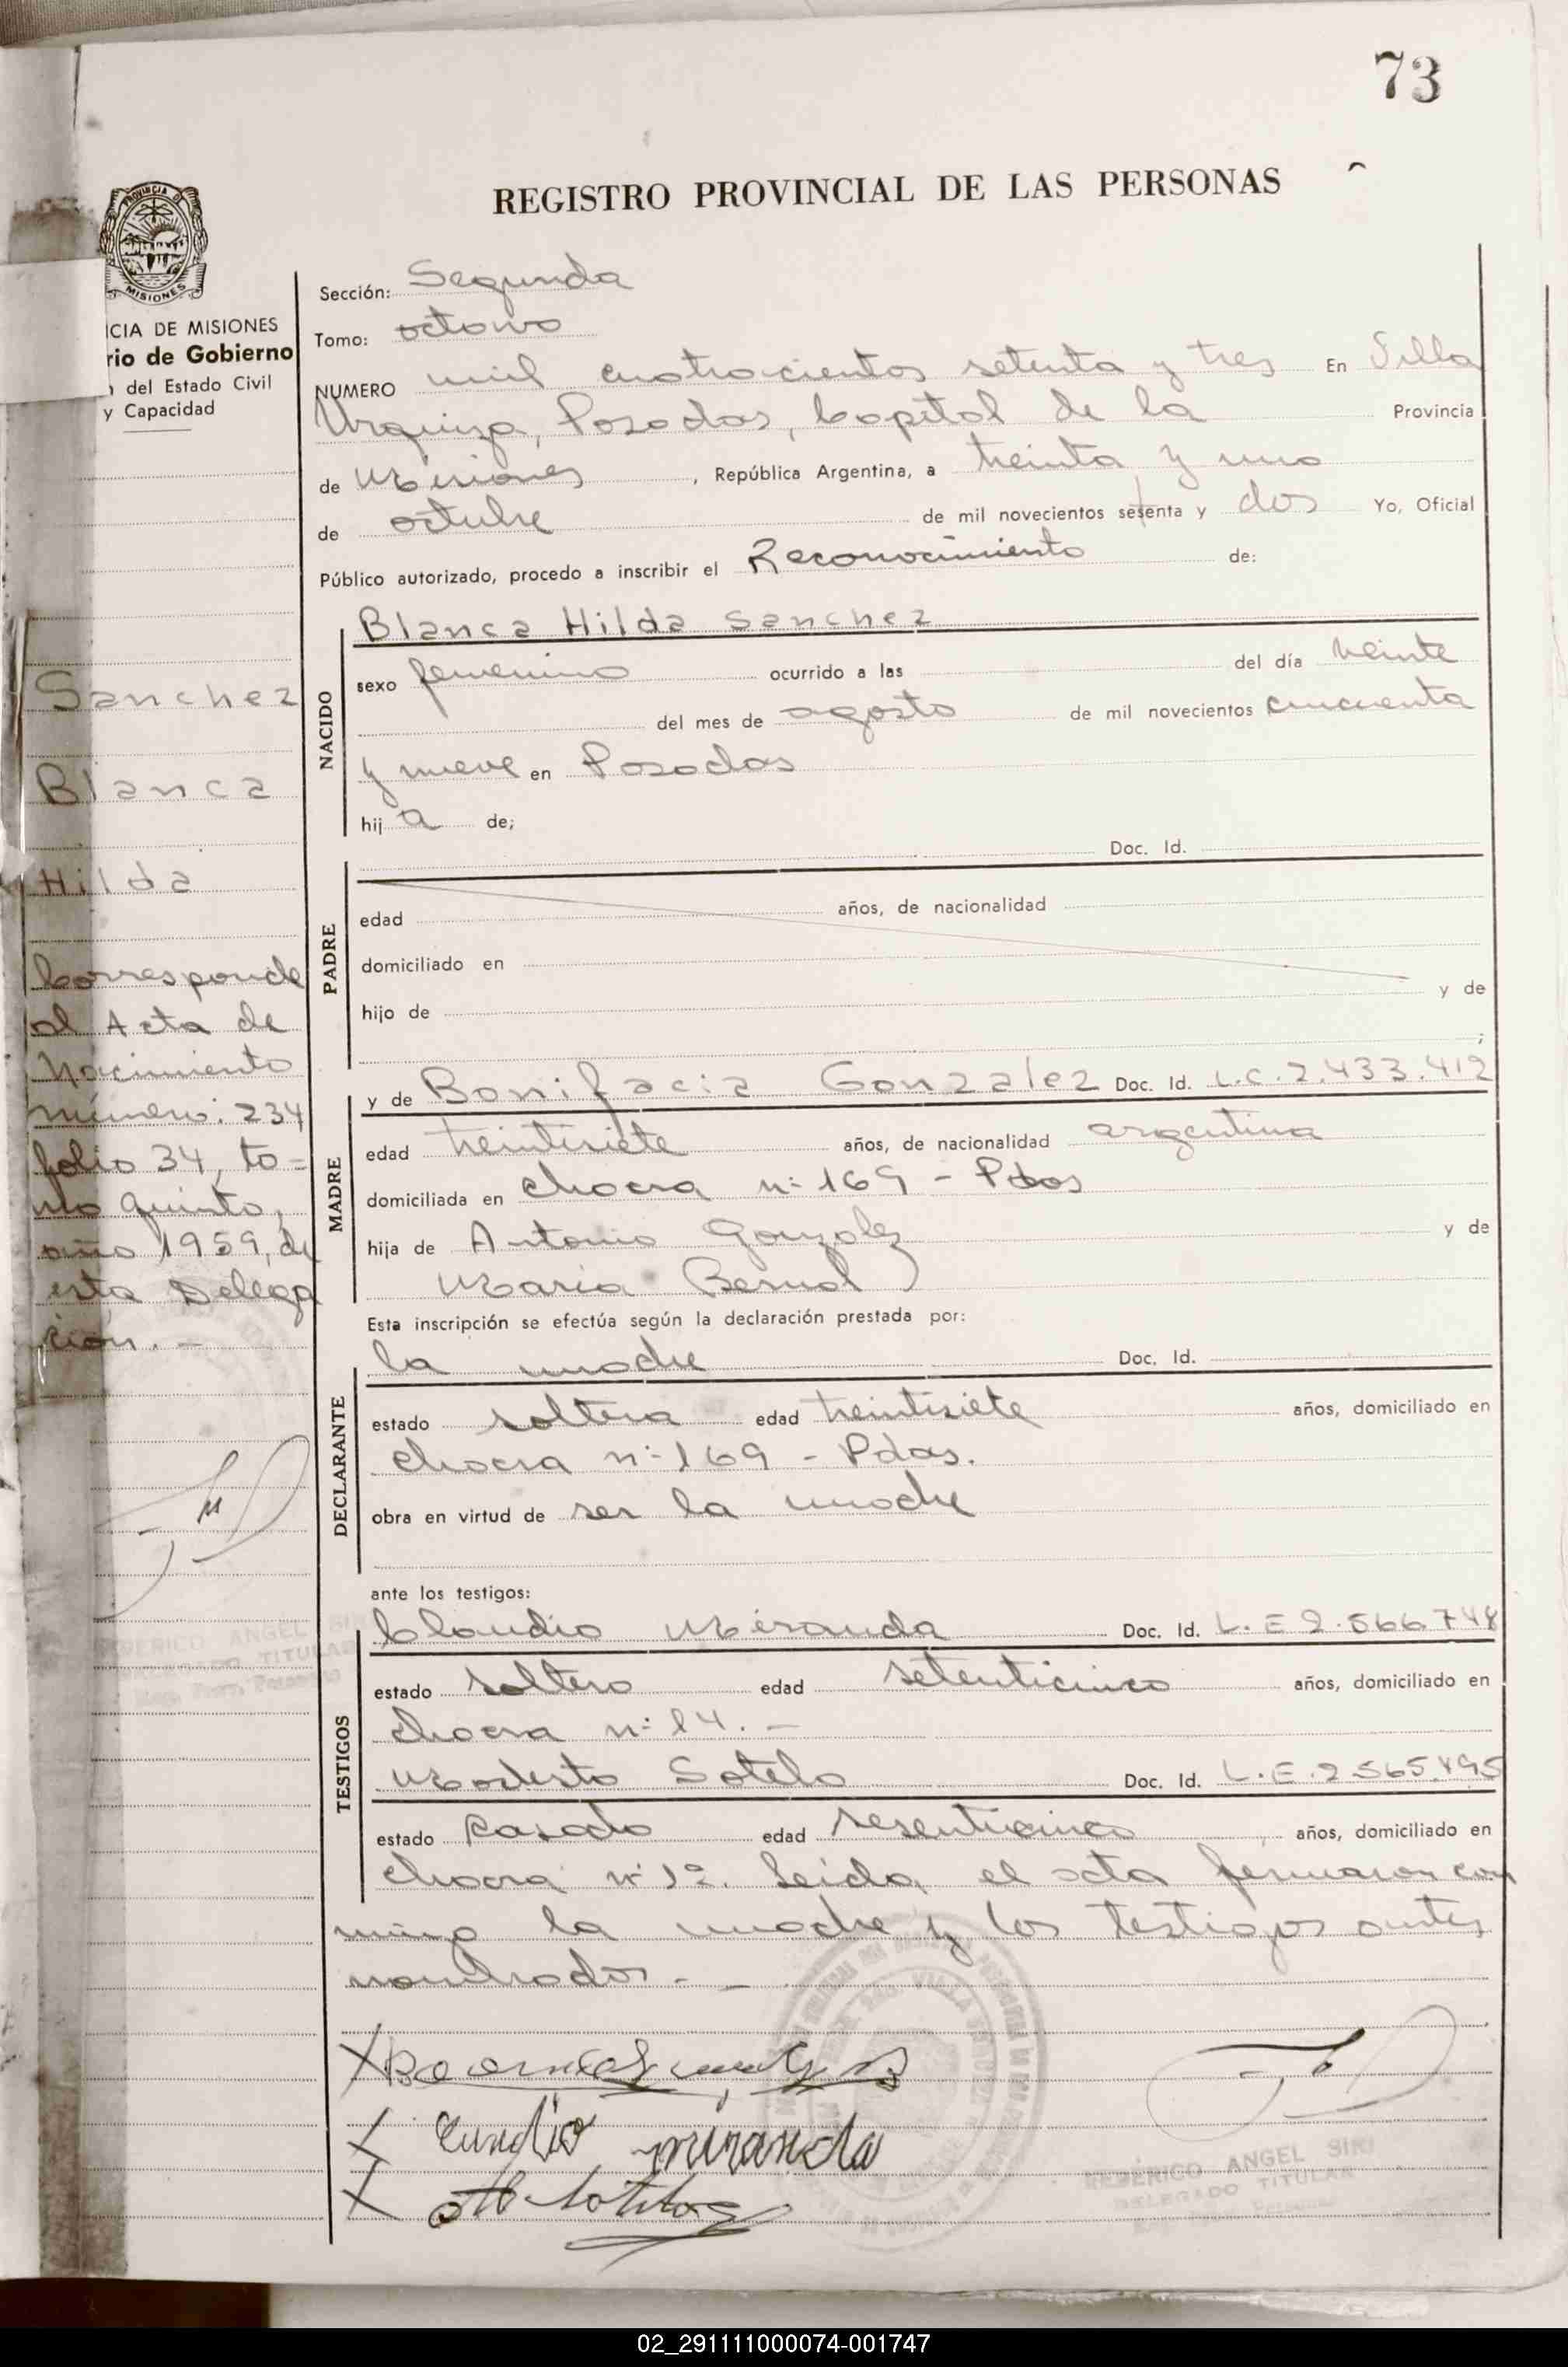 73
REGISTRO PROVINCIAL DE LAS PERSONAS
PROVINCIA D
MISIONES
CIA DE MISIONES
rio de Gobierno
del Estado Civil
y Capacidad
Sección: Segunda
Tomo: octavo
NUMERO mil cuatrocientos setenta y tres En Villa
Urquiza, Posadas, Capital de la Provincia
de Misiones, República Argentina, a treinta y uno
de octubre de mil novecientos setenta y dos Yo, Oficial
Público autorizado, procedo a inscribir el Reconocimiento de:
Sanchez
Blanca
Hilda
Corresponde
al Acta de
Nacimiento
número: 234
folio 34, to-
mo quinto,
año 1959, de
esta Delega
ción. -
FEDERICO ANGEL SIRI
DELEGADO TITULAR
NACIDO
Blanca Hilda Sanchez
sexo femenino ocurrido a las del día veinte
del mes de agosto de mil novecientos cincuenta
y nueve en Posadas
hij a de;
PADRE
Doc. Id.
edad años, de nacionalidad
domiciliado en
hijo de y de
;
MADRE
y de Bonifacia Gonzalez Doc. Id. L.C. 2.433.412
edad treintisiete años, de nacionalidad argentina
domiciliada en chacra n: 169 - Pdas
hija de Antonio Gonzalez y de
Maria Bernal
Esta inscripción se efectúa según la declaración prestada por:
DECLARANTE
la madre Doc. Id.
estado soltera edad treintisiete años, domiciliado en
chacra n: 169 - Pdas.
obra en virtud de ser la madre
ante los testigos:
TESTIGOS
Claudio Miranda Doc. Id. L. E 2.566.748
estado soltero edad setenticinco años, domiciliado en
chacra n: 14. -
Modesto Sotelo Doc. Id. L.E. 2.565.495
estado casado edad sesenticinco años, domiciliado en
chacra n: 12. Leida el acta firmaron con
migo la madre y los testigos antes
nombrados. - -
miranda
FEDERICO ANGEL SIRI
DELEGADO TITULAR
02_291111000074-001747